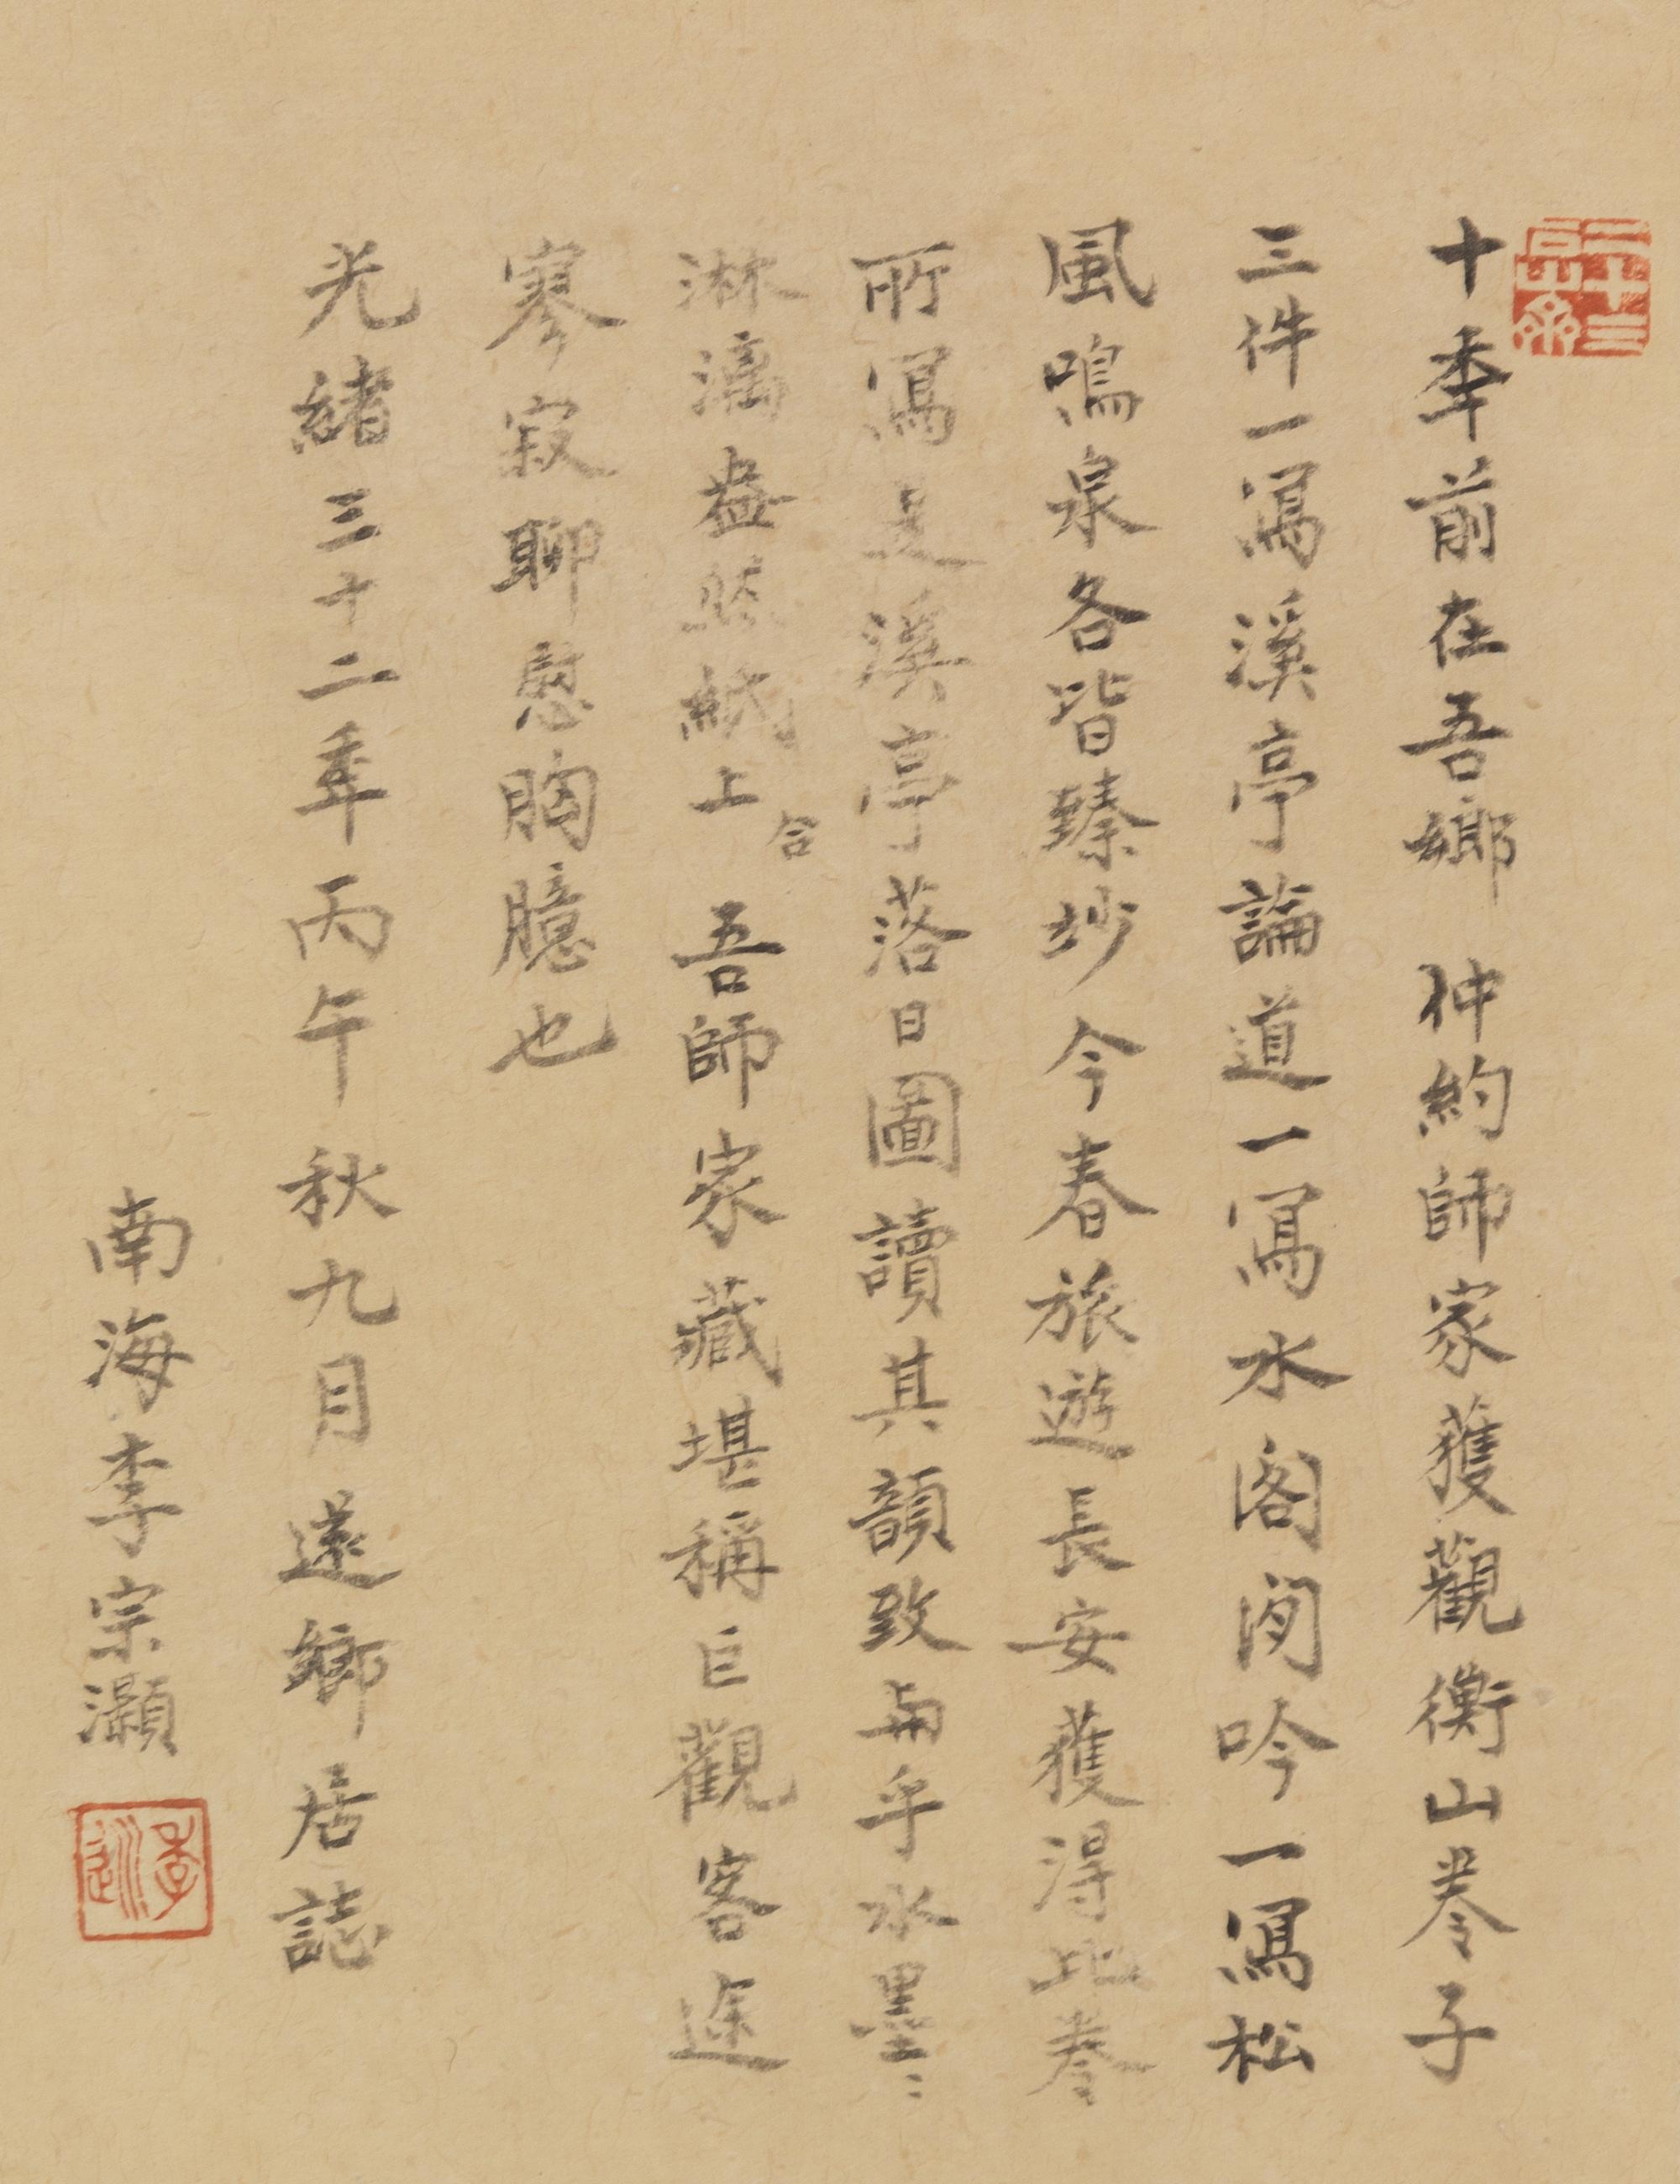 十季前在吾鄉 仲約師家獲觀衡山卷子
三件一寫溪亭論道一寫水閣閒吟一寫松
風鳴泉各皆臻妙今春旅遊長安獲得此卷
所寫是溪亭落日圖讀其韻致與乎水墨〻
淋漓盎然紙上 合 吾師家藏堪稱巨觀客途
寥寂聊慰胸臆也
光緒三十二年丙午秋九月遠鄉居誌
南海李宗灝